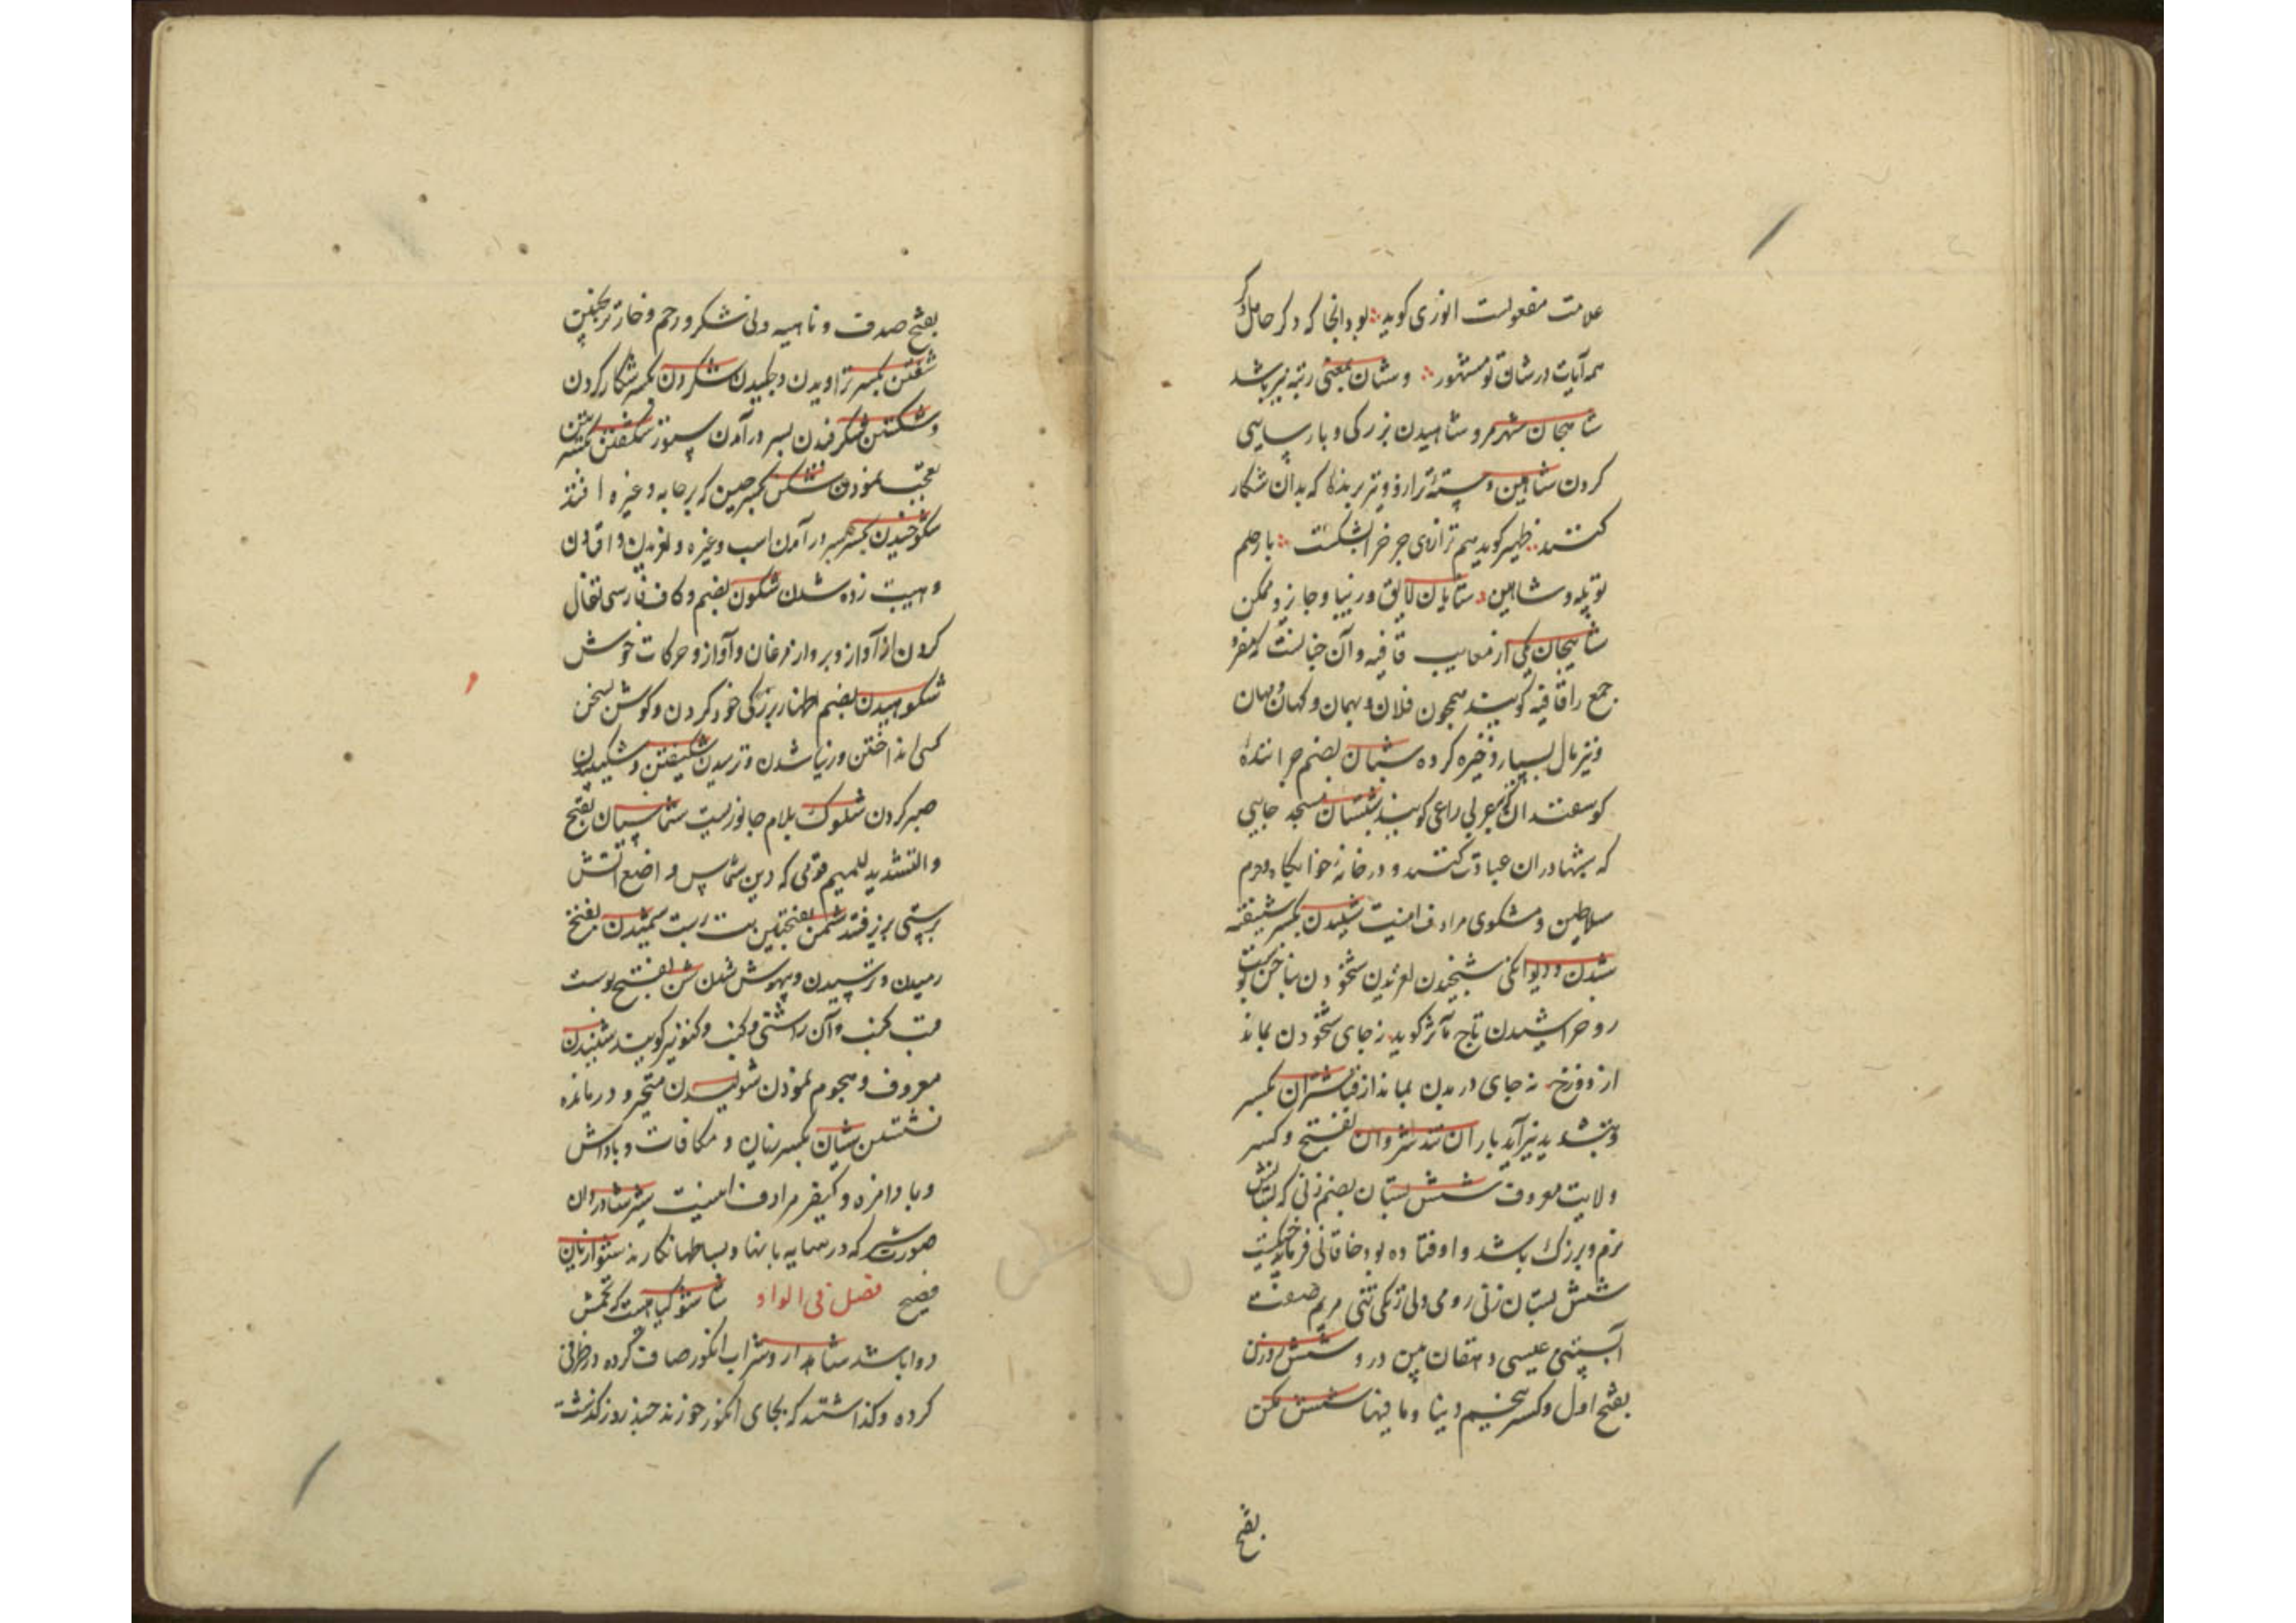 علامت مفعولست انوری کوید بود انجا که ذکر حامل ذکر
همه آیات در شان تو مشهور و شان بمعنی رتبه نیز باشد
شاهجان شهر مرو شاهیدن بزرکی و پارسایی
کردن شاهین دسته ترازو و نیز پرنده که بدان شکار
کنند ظهیر کوید هم ترازوی چرخ را بشکست بار حلم
تو پله و شاهین شایان لایق و زیبا و جایز و ممکن
شایجان یکی از معایب قافیه و آن چنانست که مفرد
جمع را قافیه کویند همچون فلان و بهمان و کهان و مهان
و نیز مال بسیار ذخیره کرده شبان بضم چراننده
کوسفندان که بعربی راعی کویند شبستان مسجد جایی
که شبها در ان عبادت کنند و در خانه خوابکاه و حرم
سلاطین و مشکوی مرادف اینست شیبیدن بکسر شیفته
شدن و دیوانکی شخیدن لغزیدن شخودن بناخن پوست
رو خراشیدن تاج مآثر کوید ز جای شخودن بماند
از دوزخ نه جای دریدن بماند از قبا شران بکسر
و بتشدید نیز آید باران تند شروان بفتح و کسر
ولایت معروف شش پستان بضم زنی که پستانش
نرم و بزرک باشد و اوفتاده بود خاقانی فرماید
شش پستان زنی رومی دلی زنکی تنی مریم صفت
آبستنی عیسی دهقان بین درو شش روزن
بفتح اول و کسر پنجم دنیا و ما فیها شش کن
بفتح
بفتح صدف و ناهیه و نی شکر و رحم و خار ترنجبین
شفتن بکسر تراویدن و چکیدن شکردن بکسر شکار کردن
و شکستن شکرفدن بسر در آمدن ستور شکفتن بکسرتین
تعجب نمودن شکن بکسر چین که بر جامه و غیره افتد
شکوخیدن بکسر بسر در آمدن اسب و غیره و لغزیدن و افتادن
و هیبت زده شدن شکون بضم و کاف فارسی تفال
کردن از آواز و پرواز مرغان و آواز و حرکات خوش
شکوهیدن بضم اظهار بزرکی خود کردن و کوش بسخن
کسی انداختن و زیبا شدن و ترسیدن شکیفتن و شکیبیدن
صبر کردن شلوک بلام جانوریست شماسیان بفتح
و التشدید للمیم قومی که دین شماس واضع آتش
پرستی پذیرفتند شمن بفتحتین بت پرست شمیدن بفتح
رمیدن و ترسیدن و بیهوش شدن شن بفتح پوست
قب کنب و آن را شنی و کنب و کنو نیز کویند شنیدن
معروف و هجوم نمودن شولیدن متحیر و درمانده
نشستن شیان بکسر بنیان و مکافات و پاداش
و باد افره و کیفر مرادف اینست شیر شادروان
صورت شیر که در سایه بانها و بساطها نکارند شیوا زبان
فصیح فصل فی الواو شاشو کیاهیست که تخمش
دوا باشد شاهدارو شراب انکور صاف کرده در ظرفی
کرده و کذاشتند که بجای انکور خورند چند روز کذشت